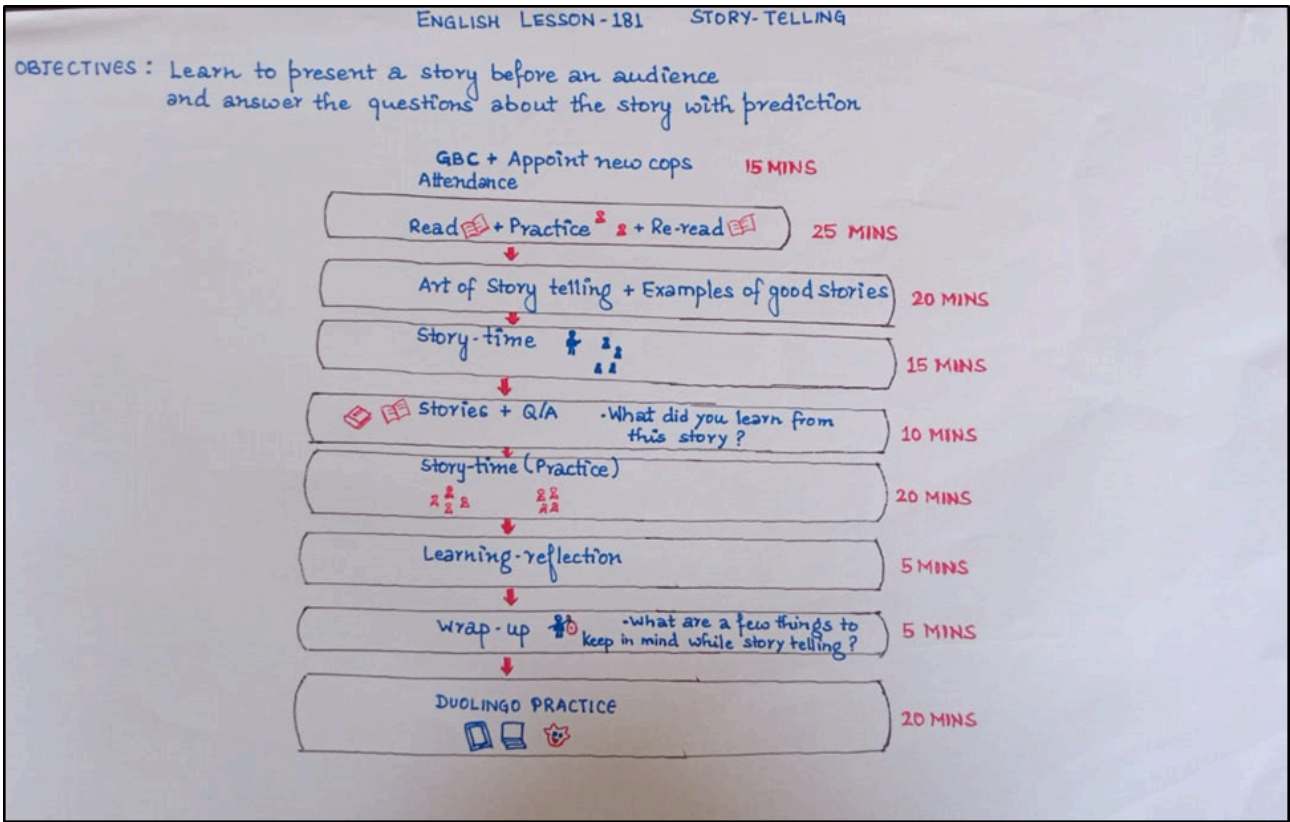 ENGLISH LESSON-181 STORY-TELLING
OBJECTIVES: Learn to present a story before an audience
and answer the questions about the story with prediction
GBC + Appoint new cops 15 MINS
Attendance
Read + Practice + Re-read 25 MINS
Art of Story telling + Examples of good stories 20 MINS
Story-time 15 MINS
Stories + Q/A -What did you learn from
this story? 10 MINS
Story-time (Practice)
20 MINS
Learning-reflection 5 MINS
Wrap-up -What are a few things to 5 MINS
keep in mind while story telling?
DUOLINGO PRACTICE
20 MINS